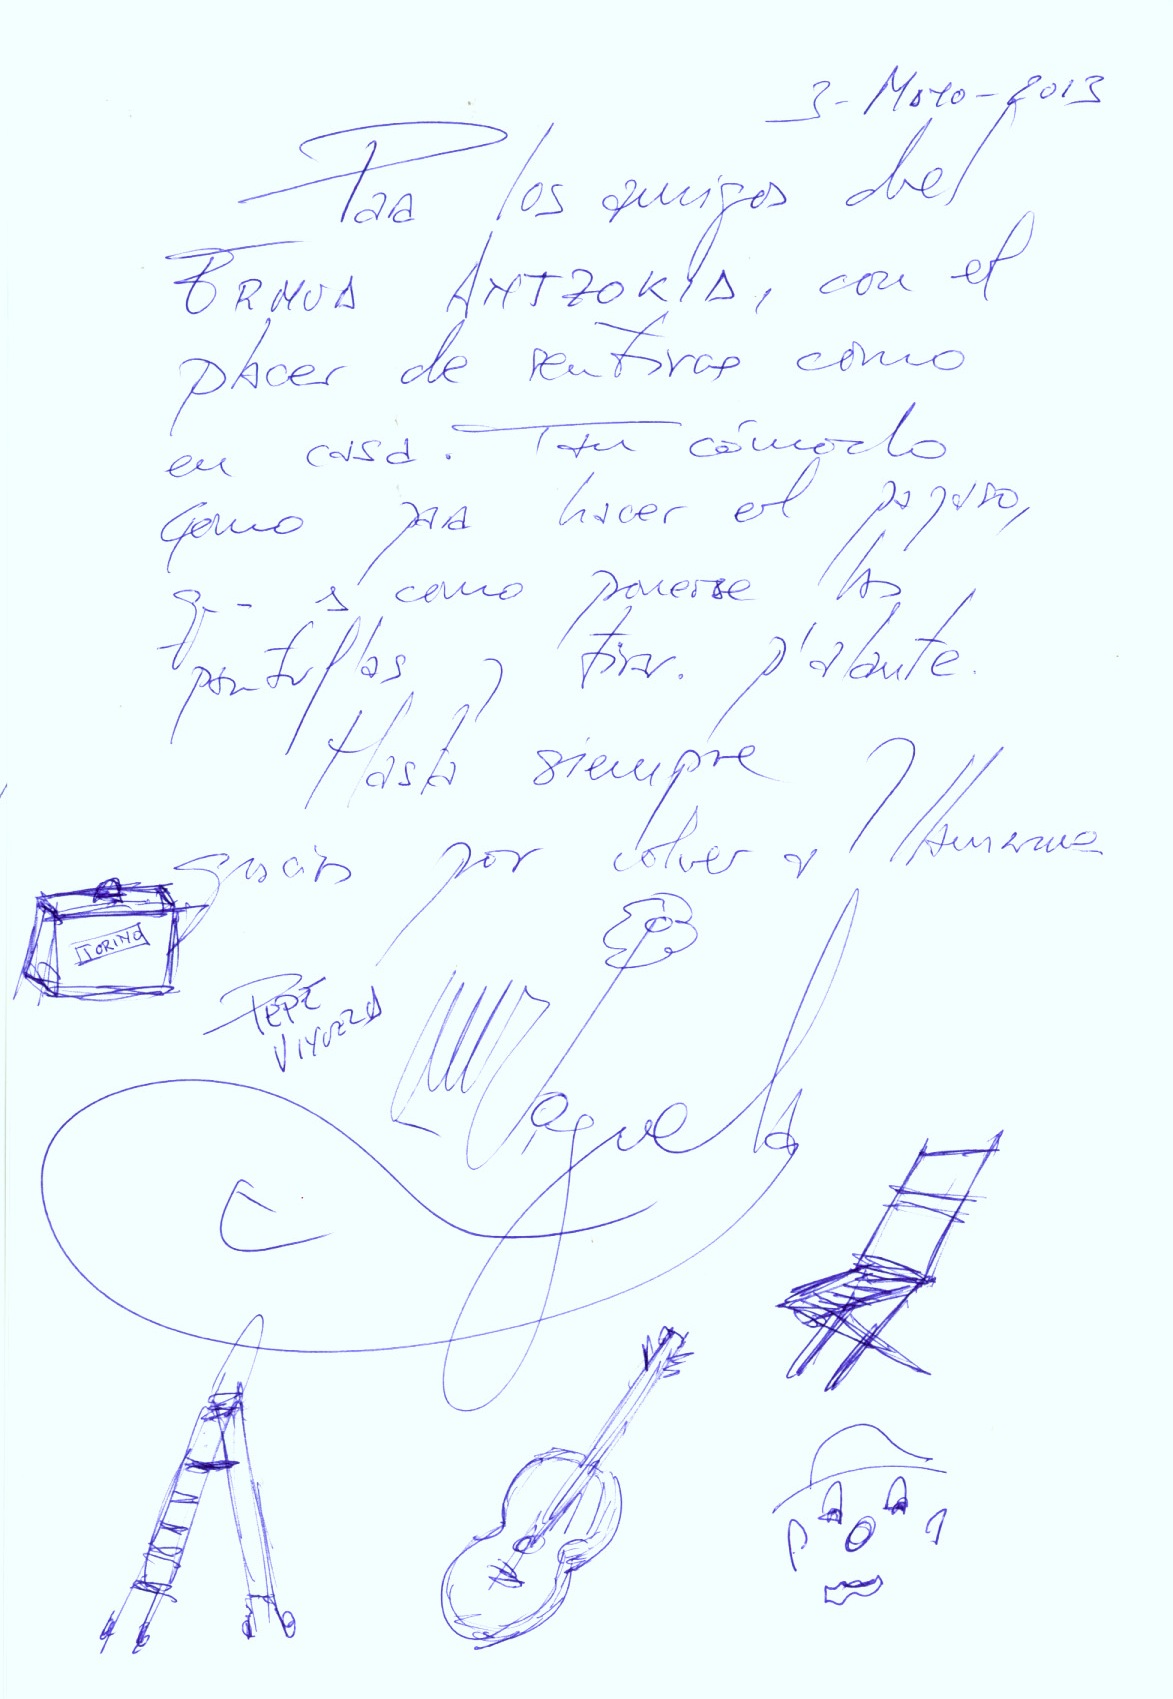 3-Mayo-2013
Para los amigos del
ERMUA ANTZOKIA, con el
placer de sentirse como
en casa. Tan cómodo
como para hacer el payaso,
que es como ponerse las
pantuflas y tirar. p'alante.
Hasta siempre y
gracias por volver a llamarme
TORINO
PEPE
VIYUELA
Viyuela